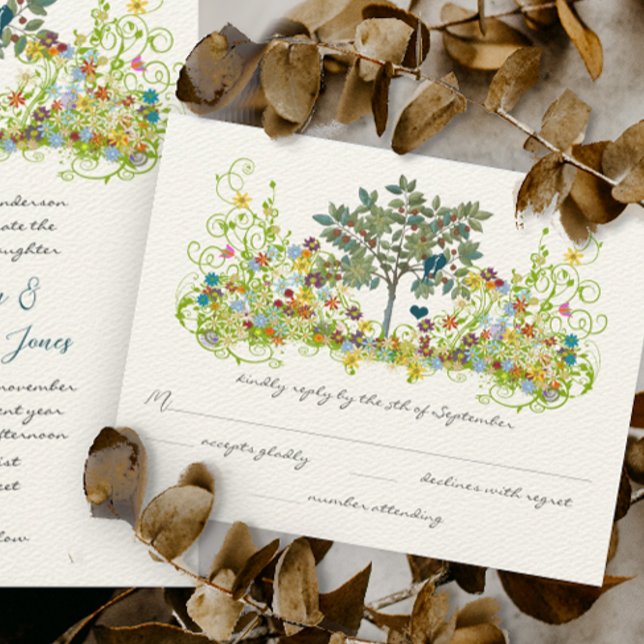 nderson
ate the
ughter
&
Jones
november
ent year
fternoon
ist
eet
low
kindly reply by the 5th of September
M
accepts gladly
declines with regret
number attending